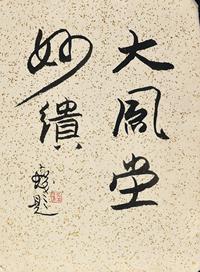 大風堂
妙繢
題